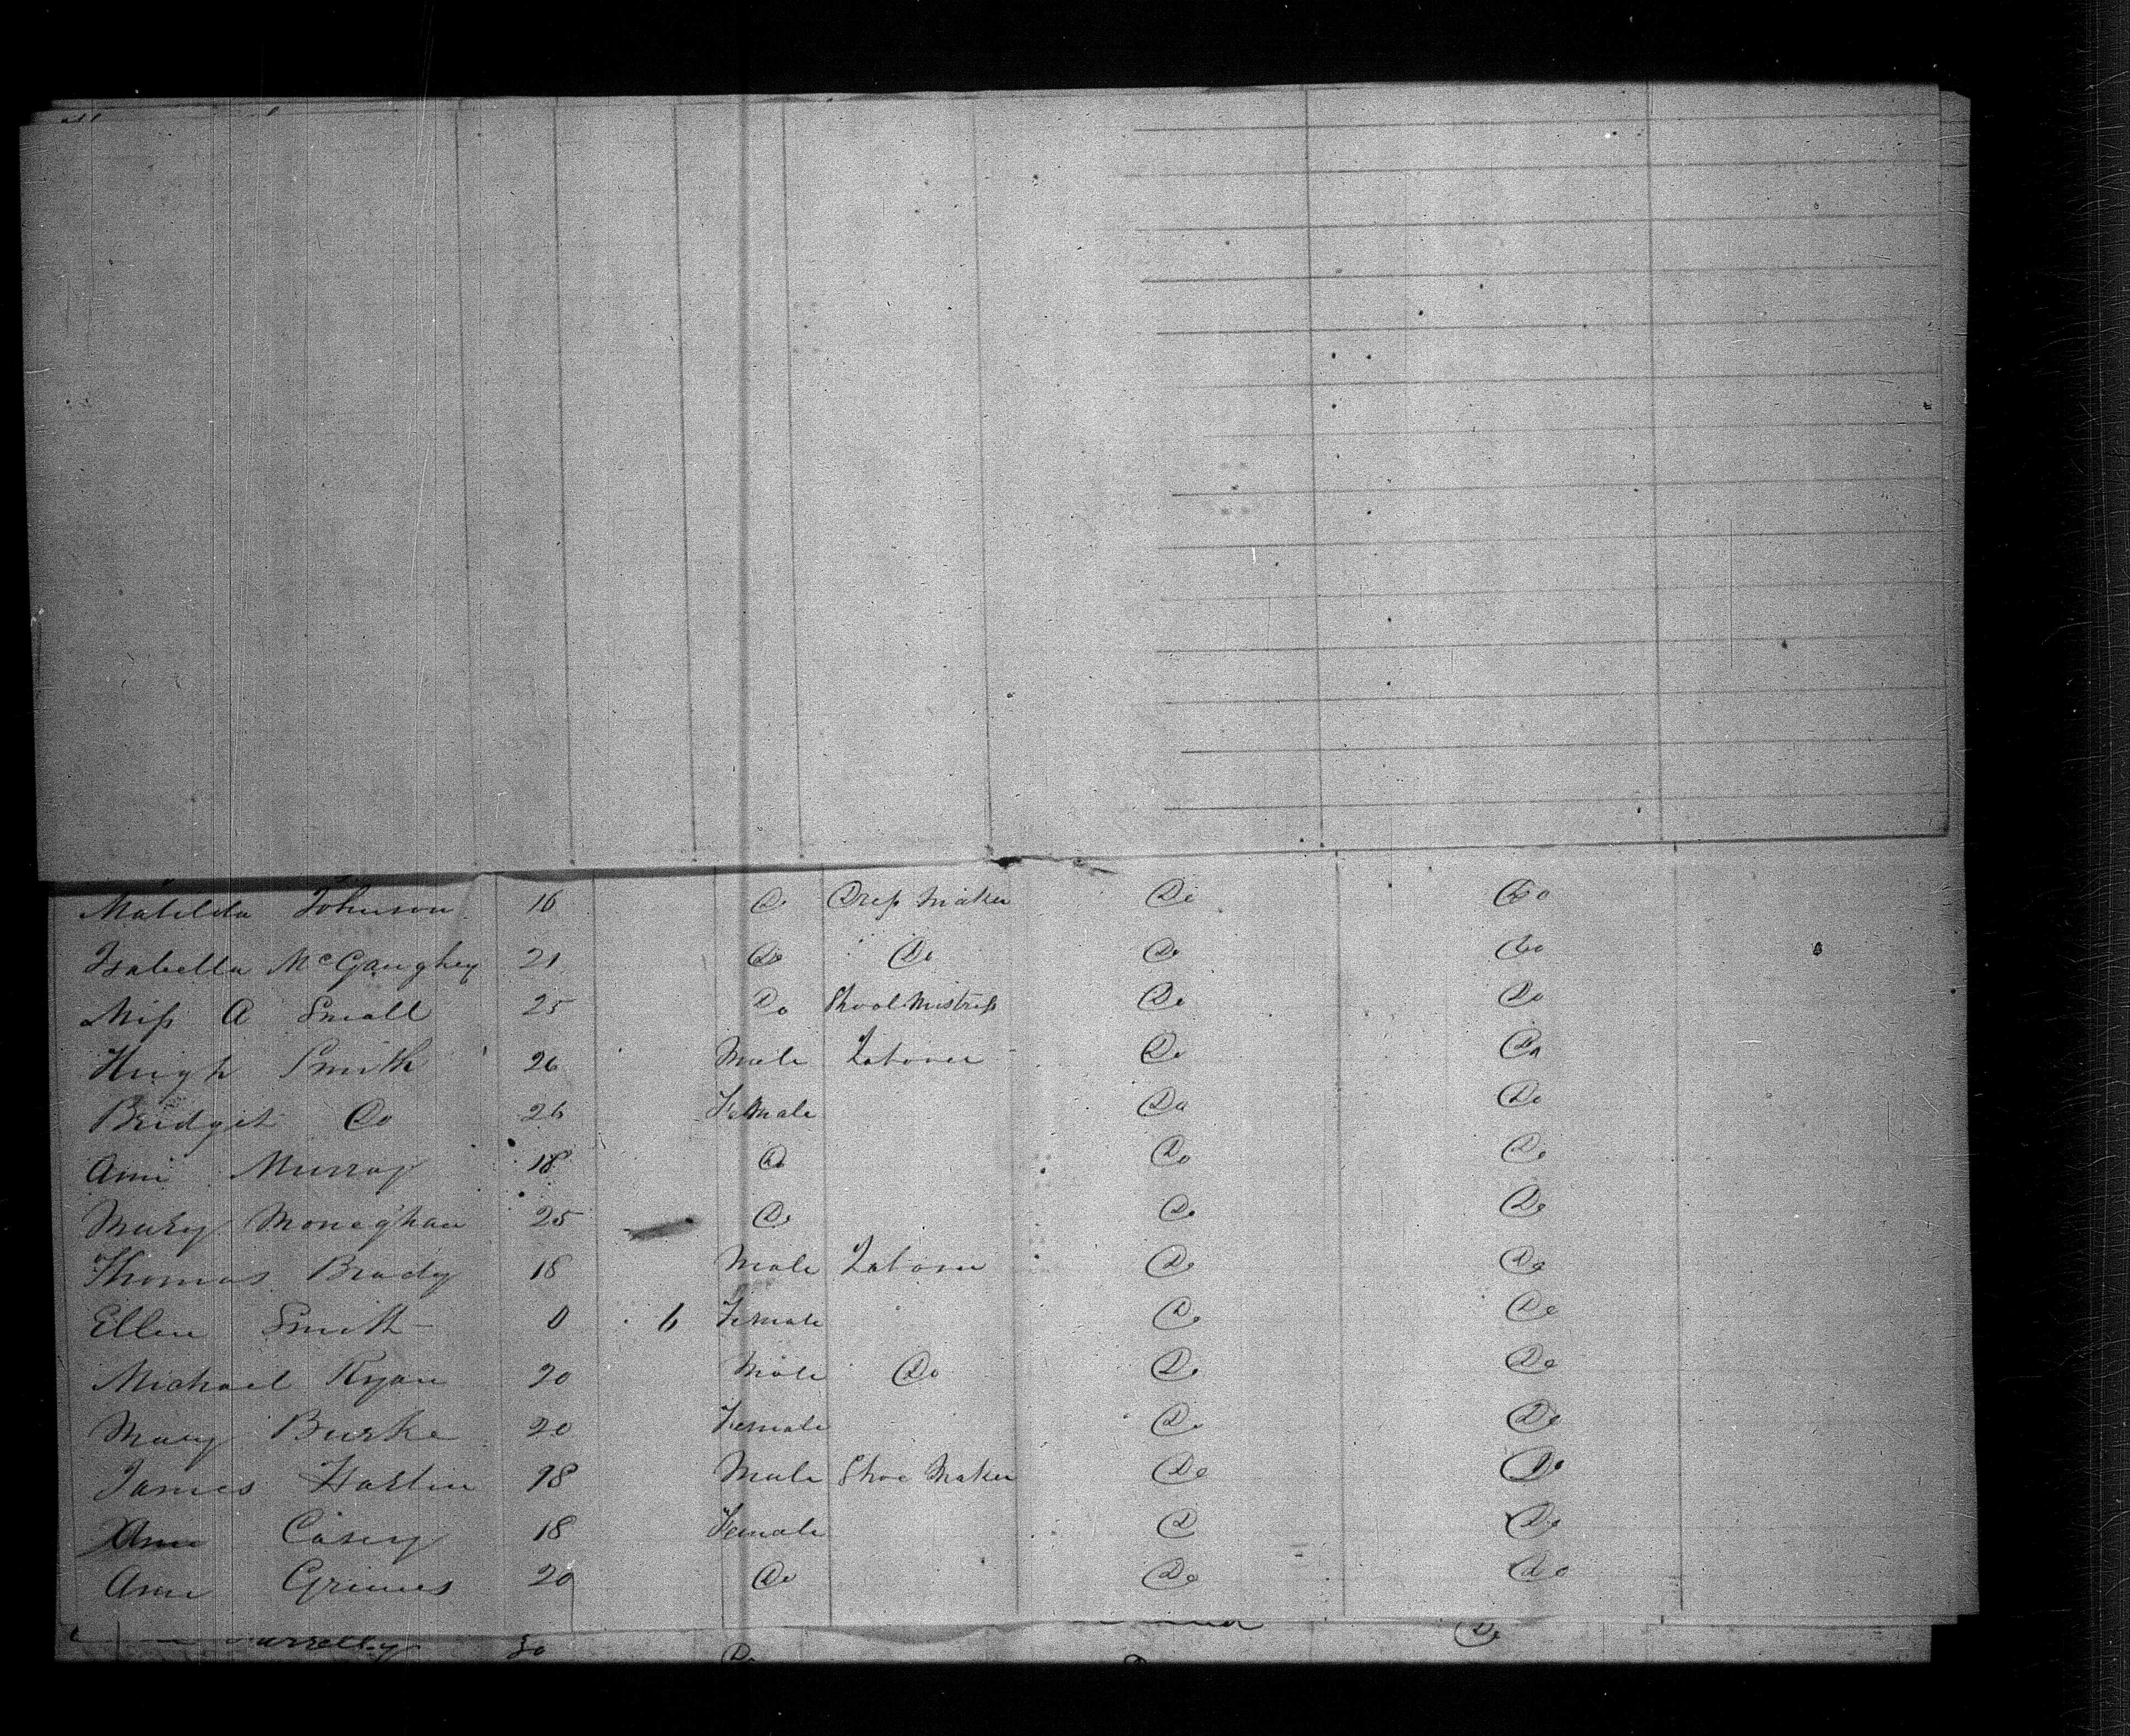 Matilda Johnson 16 Do Dress Maker Do Do
Isabella McGaughey 21 Do Do Do Do
Miss A Small 25 Do Shool Mistress Do Do
Hugh Smith 26 Male Laborer Do Do
Bridget Do 26 Female Do Do
Ann Murray 18 Do Do Do
Mary Moneghan 25 Do Do Do
Thomas Brady 18 Male Laborer Do Do
Ellen Smith 0 6 Female Do Do
Michael Ryan 20 Male Do Do Do
Mary Burke 20 Female Do Do
James Haslin 18 Male Shoe Maker Do Do
Ann Casey 18 Female Do Do
Ann Grimes 20 Do Do Do
30 Do Do